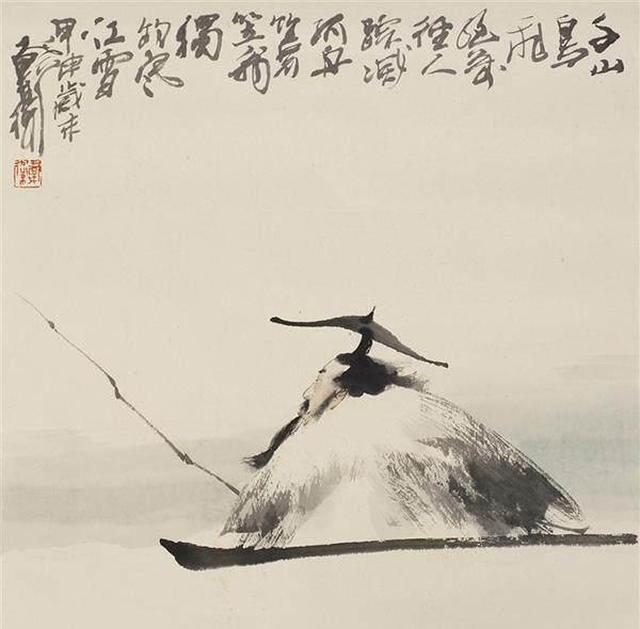 千山
鳥
飛
絕萬
徑人
蹤滅
孤舟
簑
笠翁
獨
釣寒
江雪
甲申歲末